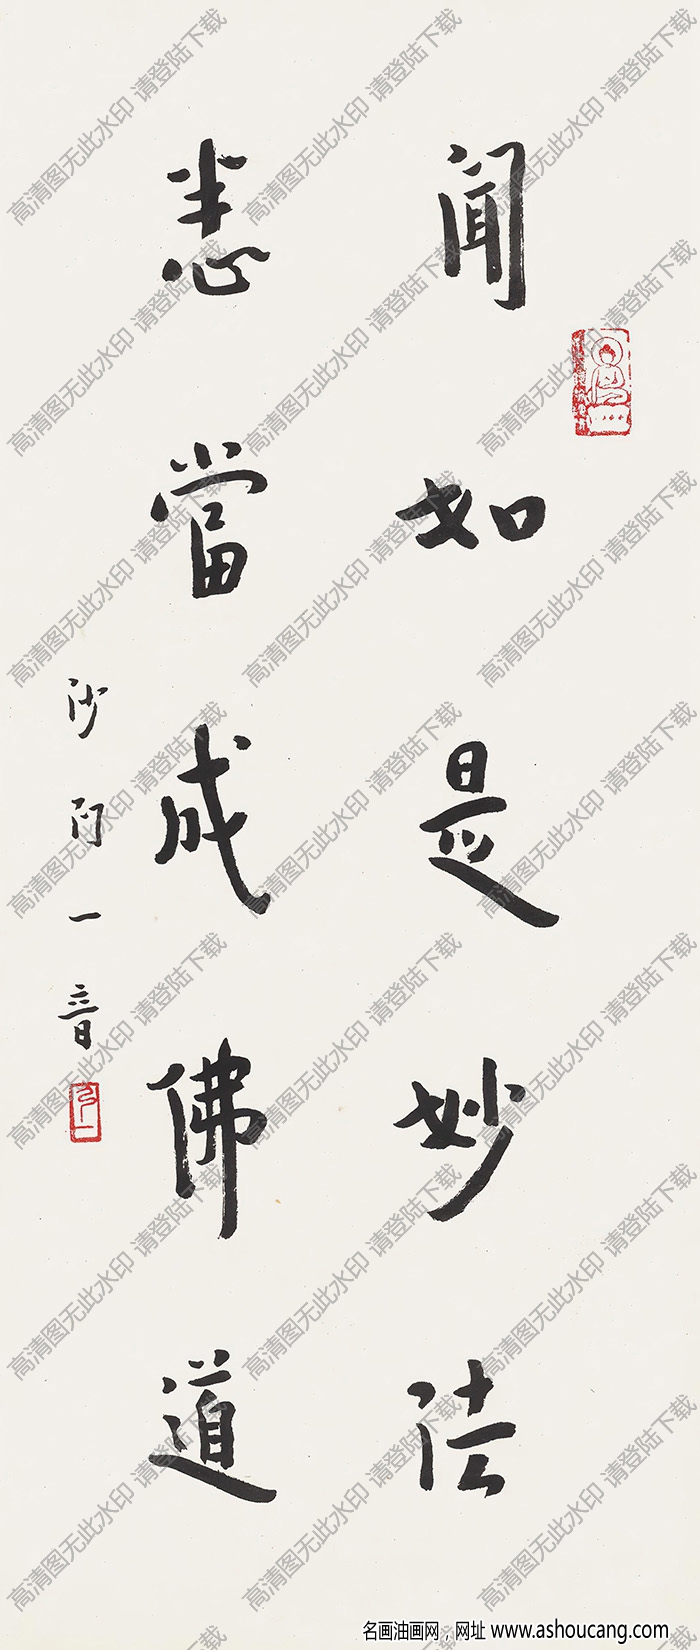 聞如是妙法
悉當成佛道
沙門一音
弘一
高清图无此水印 请登陆下载
名画油画网，网址 www.ashoucang.com